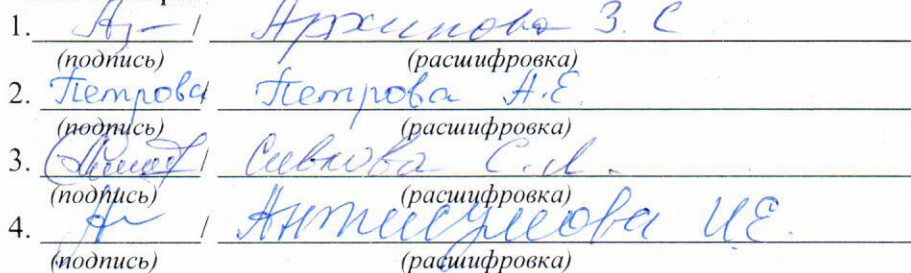 1. / Архипова З. С
(подпись) (расшифровка)
2. Петрова / Петрова А.Е.
(подпись) (расшифровка)
3. / Сивкова С.Л.
(подпись) (расшифровка)
4. / И.Е.
(подпись) (расшифровка)